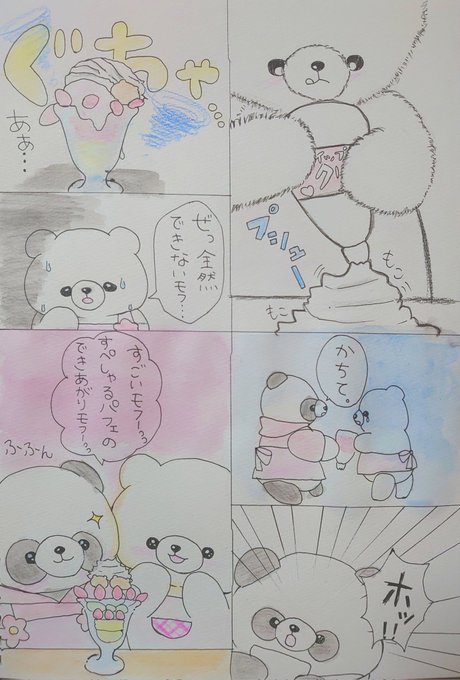 プシュー
もこ
もこ
ぐちゃ…
ああ…
ぜっ全然
できないモフ…
かちて。
ホッ!!
すごいモフーっっ
すぺしゃるパフェの
できあがりモフーっっ
ふーふん